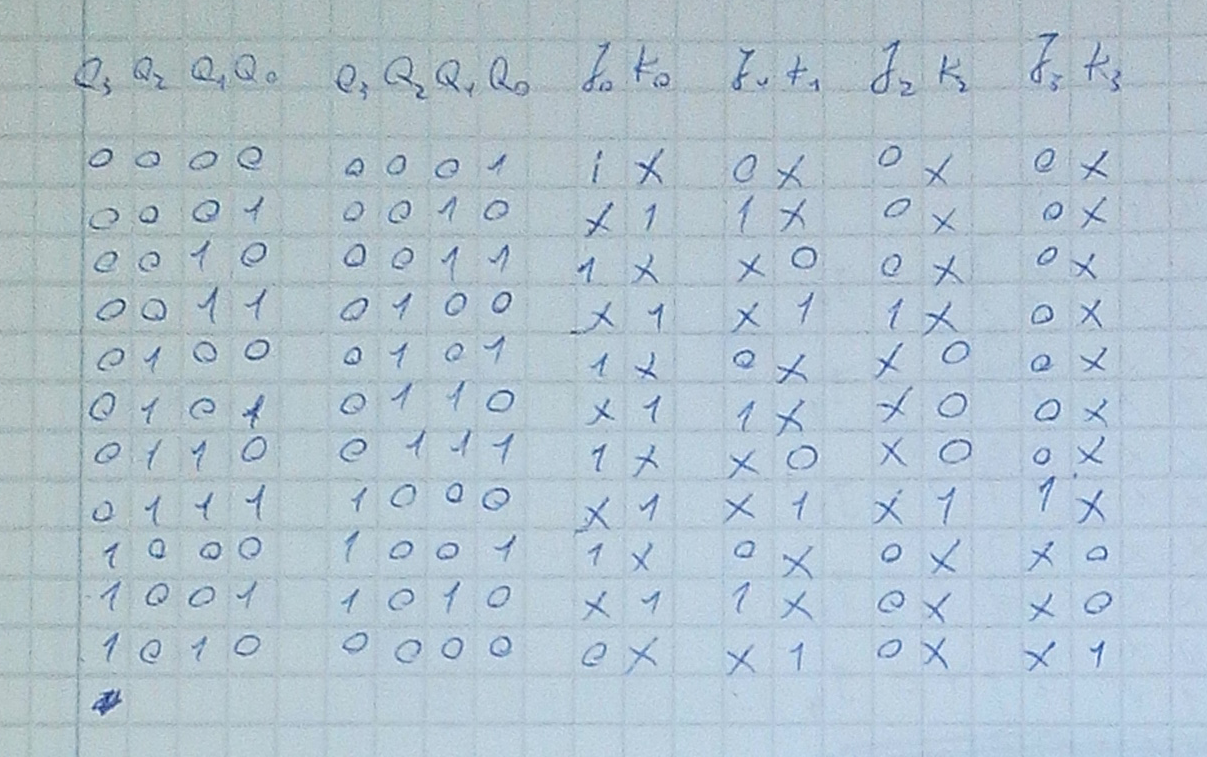 Q₃ Q₂ Q₁ Q₀ Q₃ Q₂ Q₁ Q₀ J₀ K₀ J₁ K₁ J₂ K₂ J₃ K₃
0 0 0 0 0 0 0 1 1 X 0 X 0 X 0 X
0 0 0 1 0 0 1 0 X 1 1 X 0 X 0 X
0 0 1 0 0 0 1 1 1 X X 0 0 X 0 X
0 0 1 1 0 1 0 0 X 1 X 1 1 X 0 X
0 1 0 0 0 1 0 1 1 X 0 X X 0 0 X
0 1 0 1 0 1 1 0 X 1 1 X X 0 0 X
0 1 1 0 0 1 1 1 1 X X 0 X 0 0 X
0 1 1 1 1 0 0 0 X 1 X 1 X 1 1 X
1 0 0 0 1 0 0 1 1 X 0 X 0 X X 0
1 0 0 1 1 0 1 0 X 1 1 X 0 X X 0
1 0 1 0 0 0 0 0 0 X X 1 0 X X 1